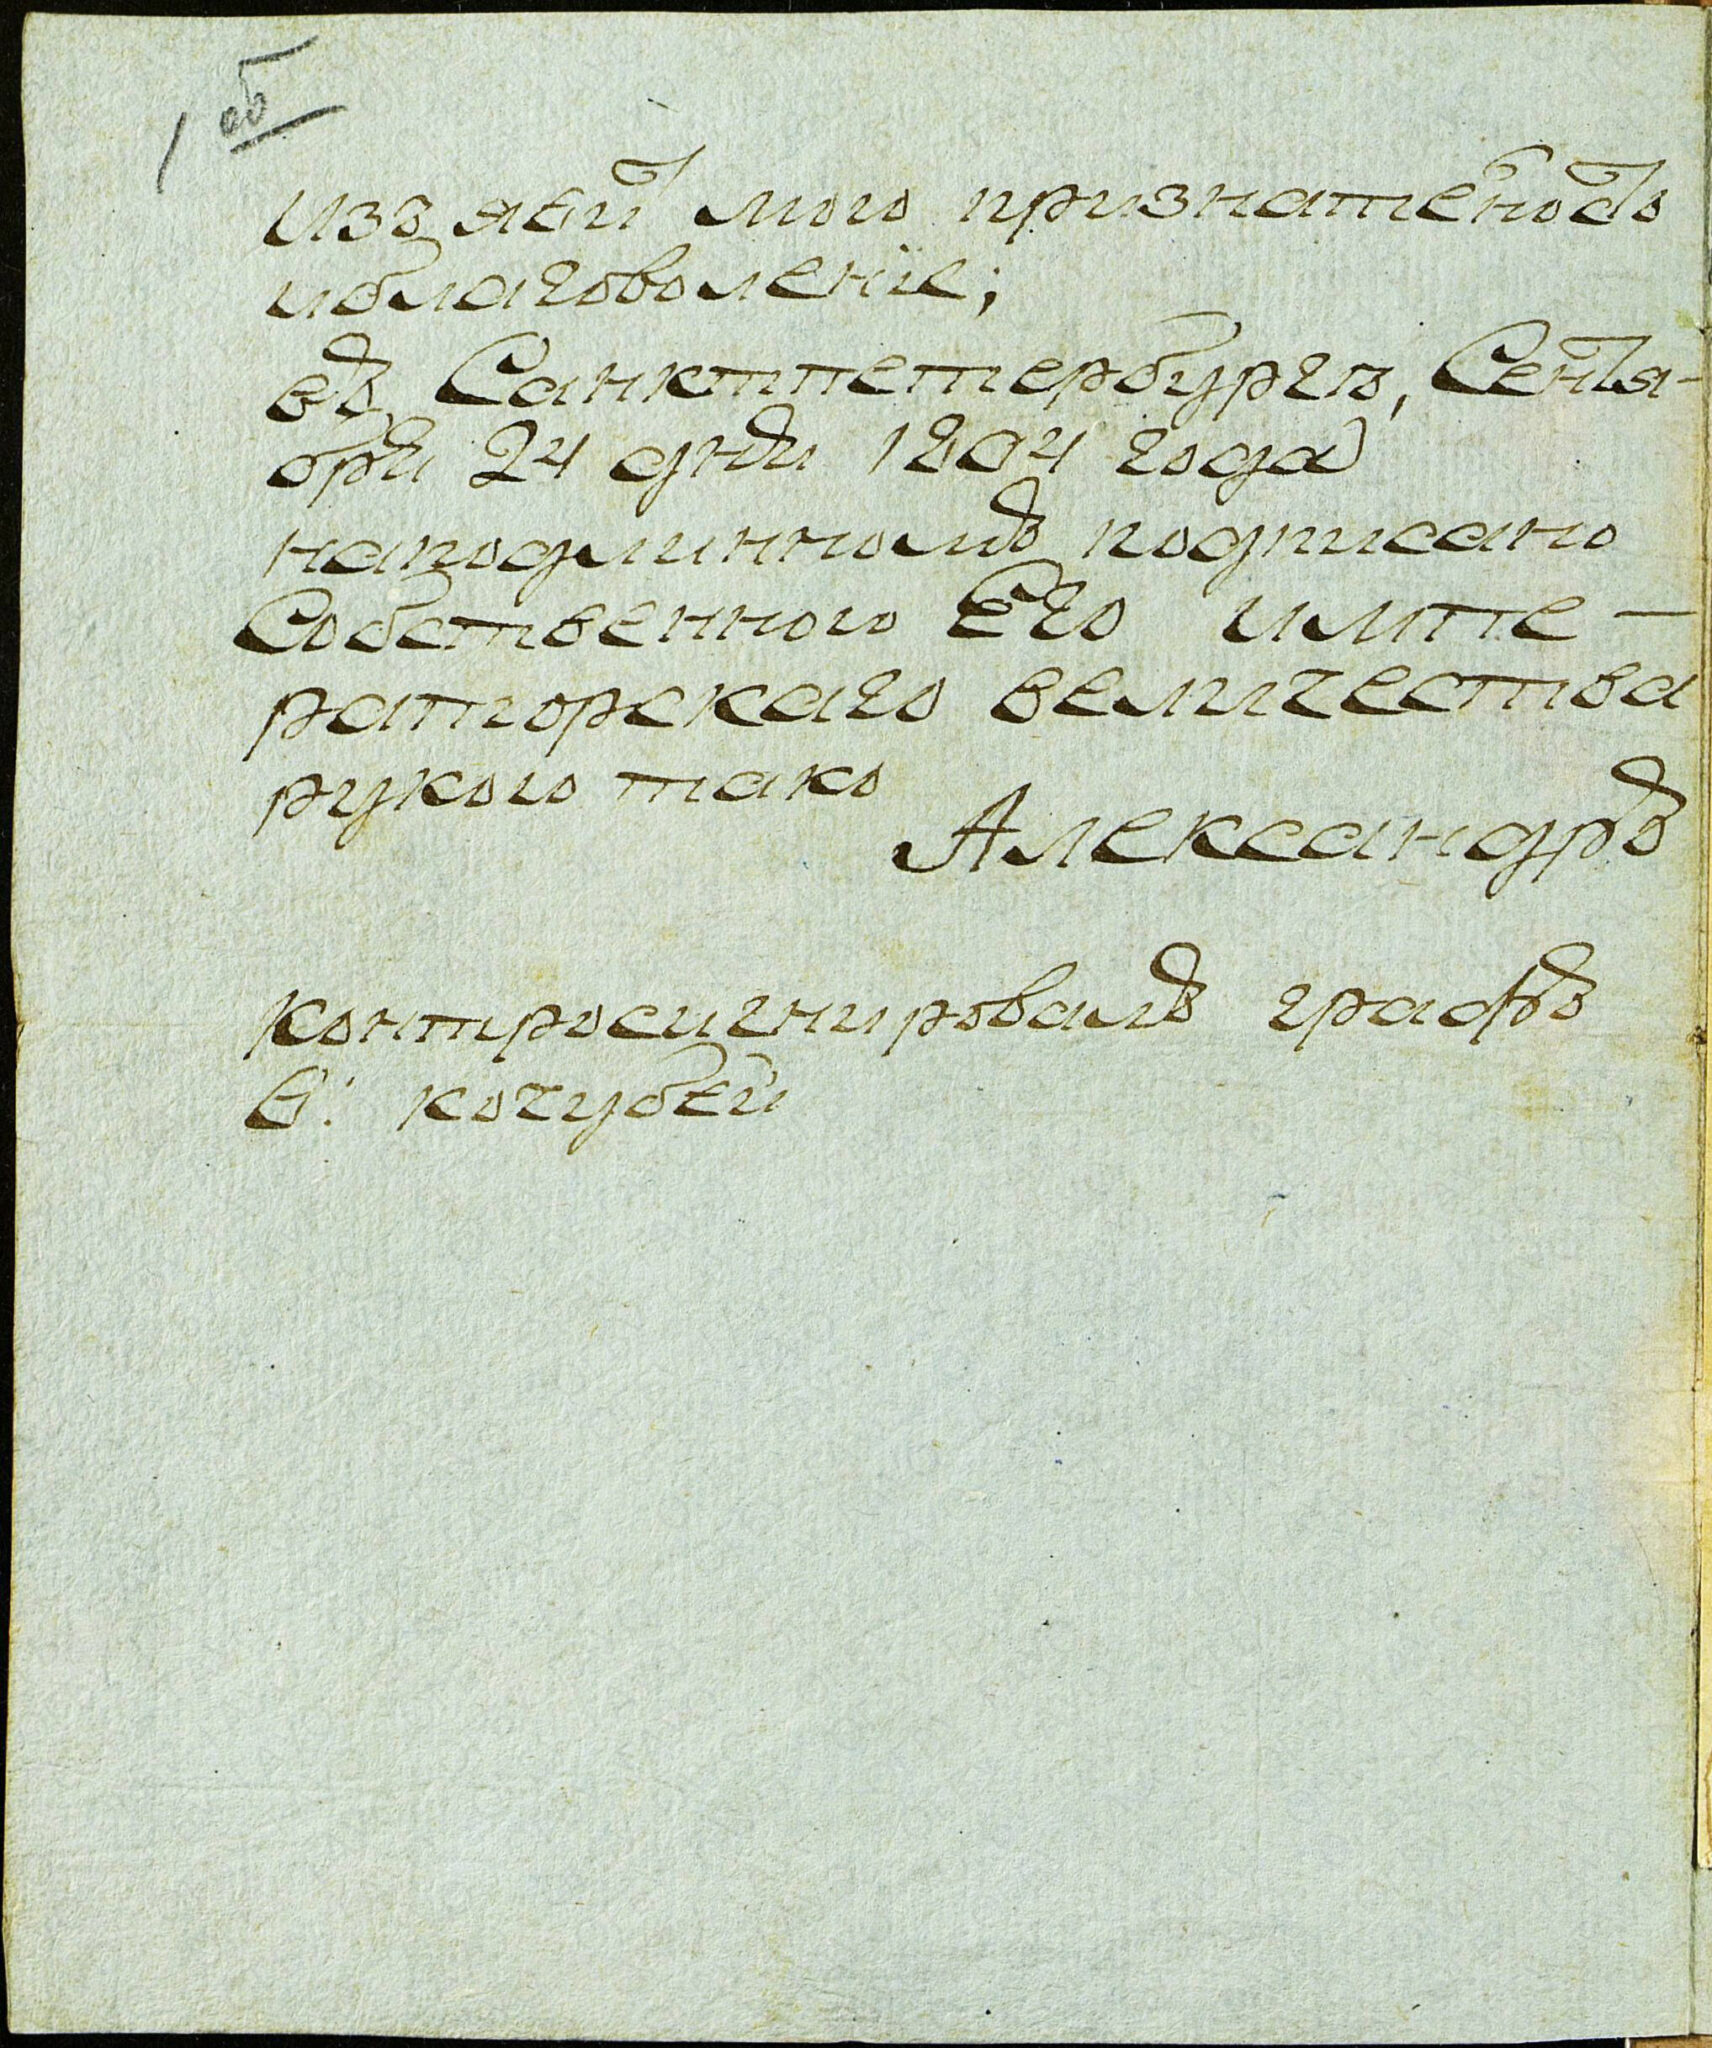 1 об
изъявит мою признателность
иблаговоленіе;
въ Санктпетербургъ, Сентя-
бря 24 дня 1804 года
наподлинномъ подписано
Собственною Его импе-
раторскаго величества
рукою тако
Александръ
контросигнировалъ графъ
В: кочубей